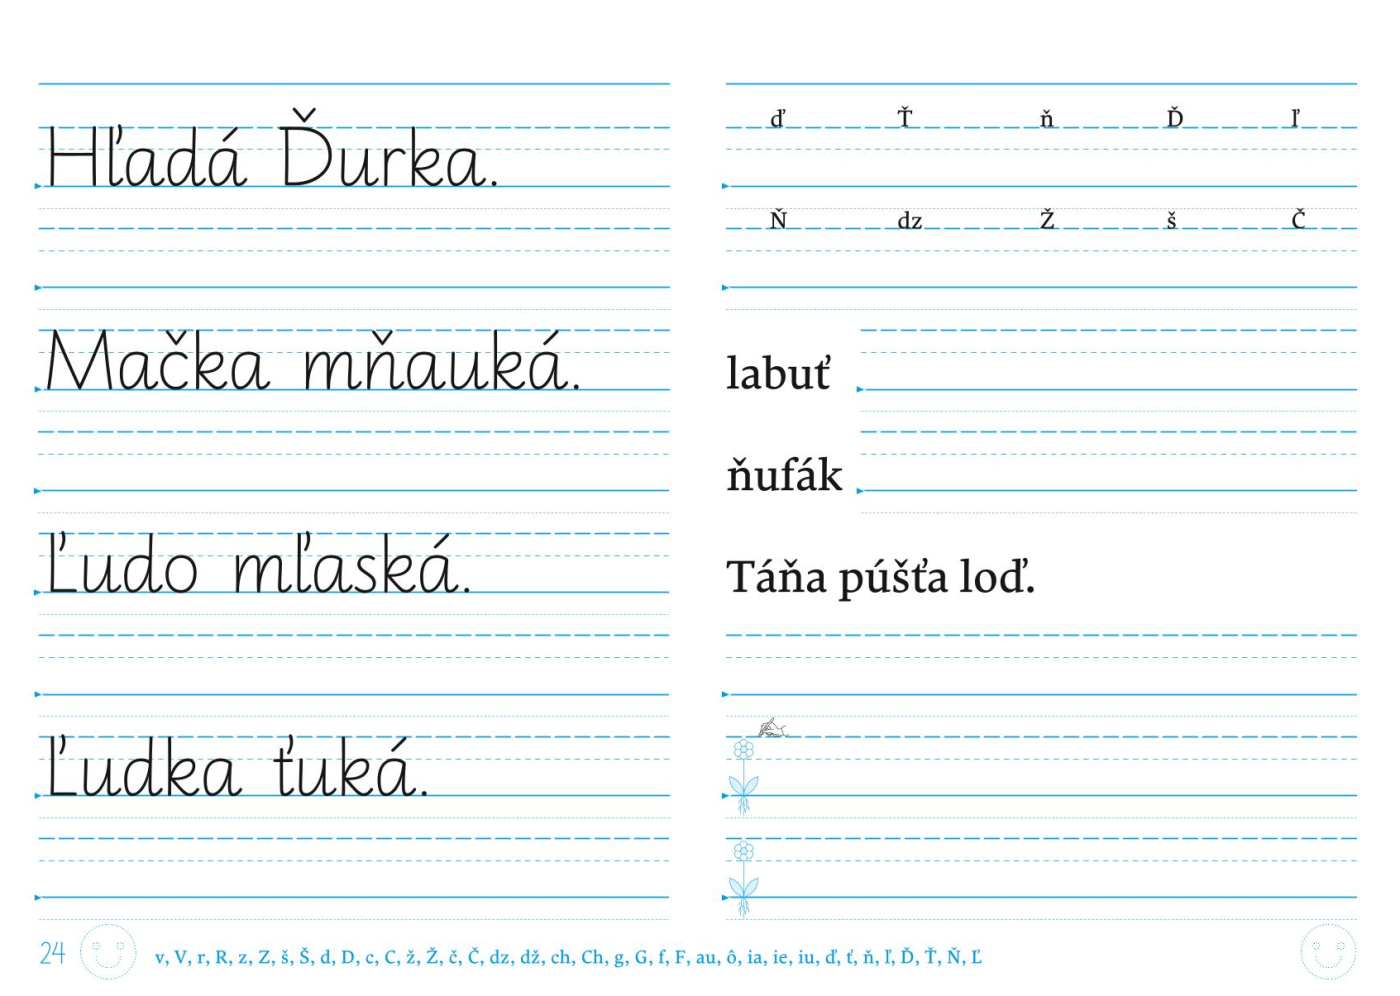 Hľadá Ďurka.
Mačka mňauká.
Ľudo mľaská.
Ľudka ťuká.
ď Ť ň Ď ľ
Ň dz Ž š Č
labuť
ňufák
Táňa púšťa loď.
24
v, V, r, R, z, Z, š, Š, d, D, c, C, ž, Ž, č, Č, dz, dž, ch, Ch, g, G, f, F, au, ô, ia, ie, iu, ď, ť, ň, ľ, Ď, Ť, Ň, Ľ